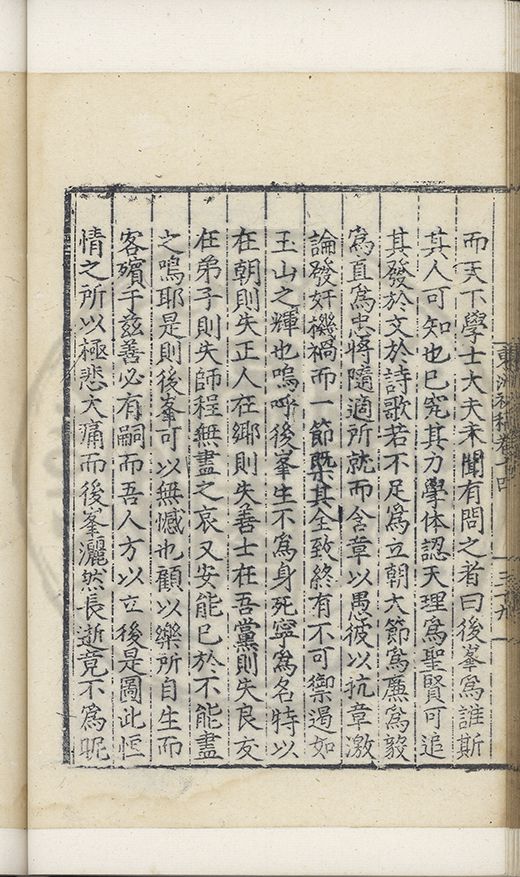 而天下學士大夫未聞有問之者曰後峯爲誰斯
其人可知也巳究其力學体認天理爲聖賢可追
其發於文於詩歌若不足爲立朝大節爲廉爲毅
爲直爲忠將隨適所就而含章以愚彼以抗章激
論發奸機禍而一節槩其全致終有不可禦遏如
玉山之輝也嗚呼後峯生不爲身死寧爲名特以
在朝則失正人在鄉則失善士在吾黨則失良友
在弟子則失師程無盡之哀又安能已於不能盡
之鳴耶是則後峯可以無憾也顧以樂所自生而
客殯于兹善必有嗣而吾人方以立後是圖此恆
情之所以極悲大痛而後峯灑然長逝竟不爲昵